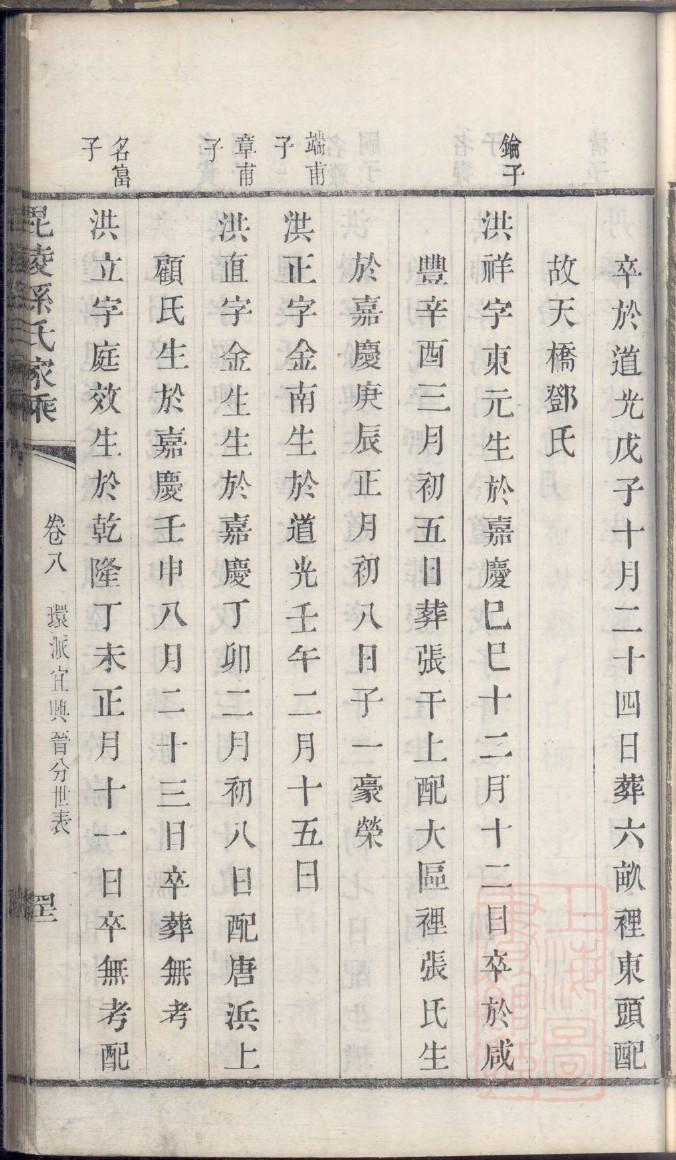 卒於道光戊子十月二十四日葬六畝裡東頭配
故天橋鄧氏
錀子
洪祥字東元生於嘉慶巳巳十二月十二日卒於咸
豐辛酉三月初五日葬張干上配大區裡張氏生
於嘉慶庚辰正月初八日子一豪榮
端甫子
洪正字金南生於道光壬午二月十五日
章甫子
洪直字金生生於嘉慶丁卯二月初八日配唐浜上
顧氏生於嘉慶壬申八月二十三日卒葬無考
名富子
洪立字庭效生於乾隆丁未正月十一日卒無考配
毘陵孫氏家乘
卷八
環派宜興晉分世表
上海圖書館藏